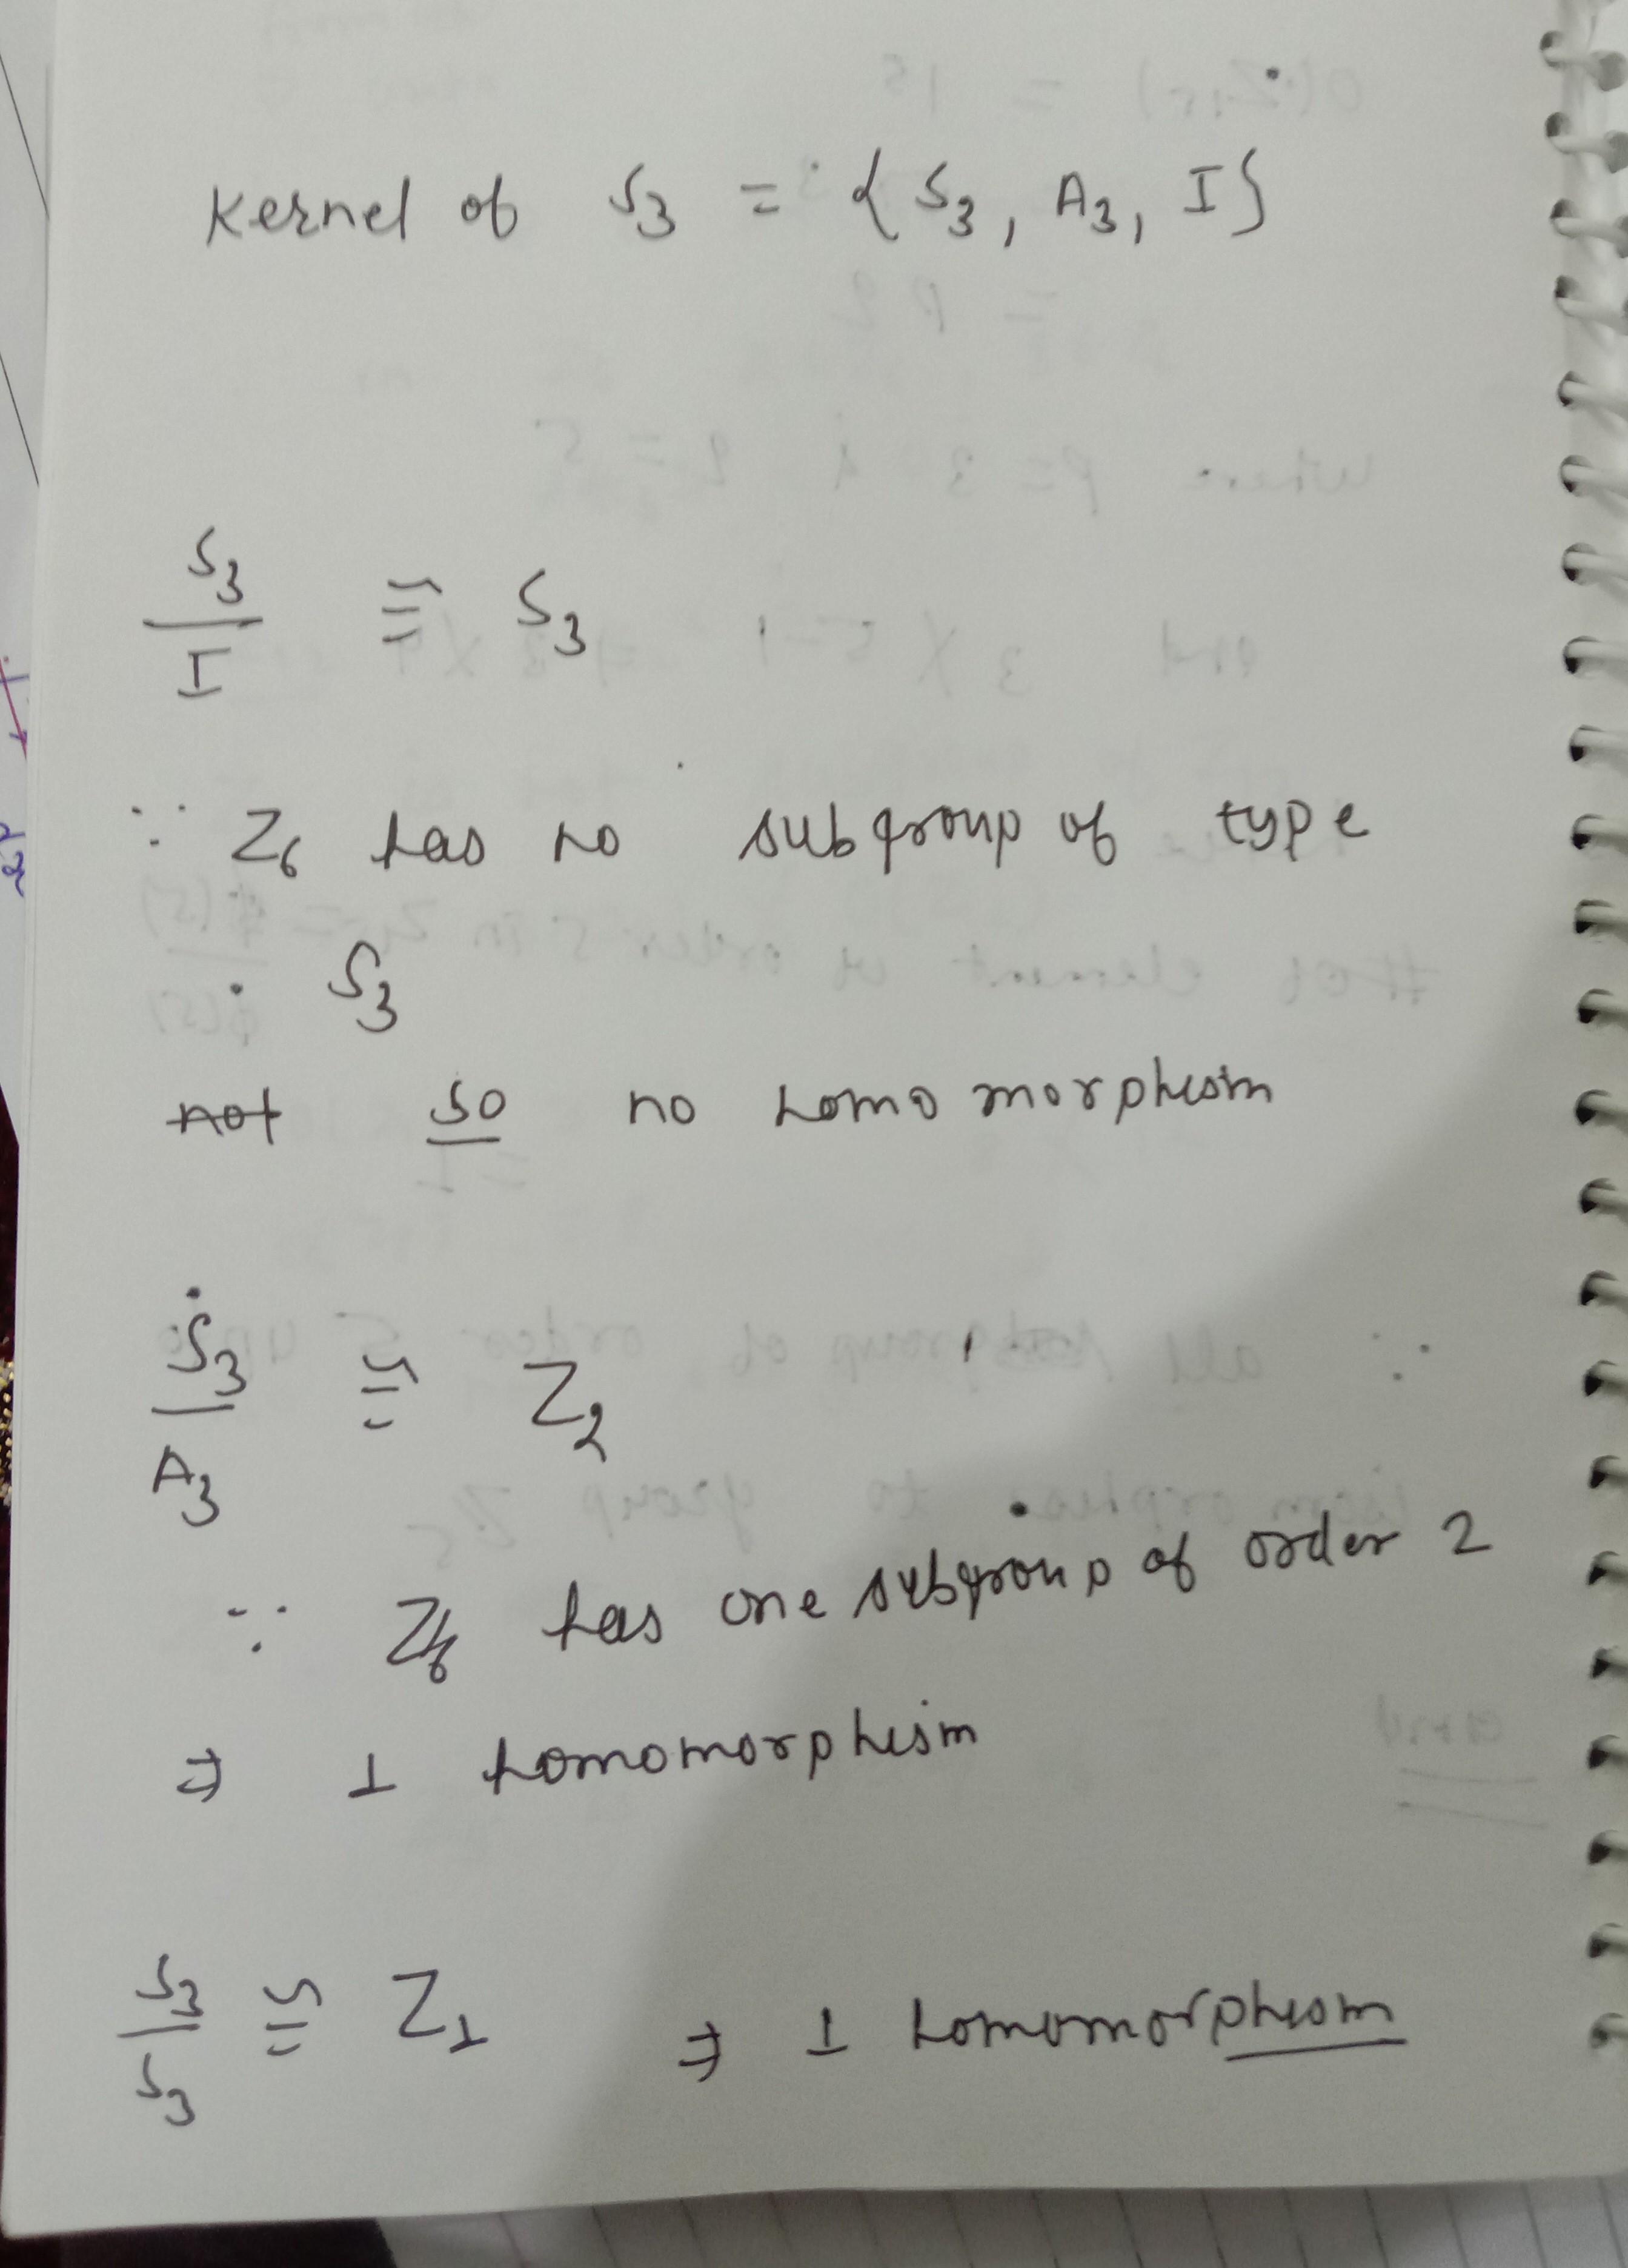 Kernel of S3 = { S3, A3, I }
S3/I ≅ S3
∵ Z6 has no subgroup of type
S3
not so no homomorphism
S3/A3 ≅ Z2
∵ Z6 has one subgroup of order 2
⇒ 1 homomorphism
S3/S3 ≅ Z1 ⇒ 1 homomorphism